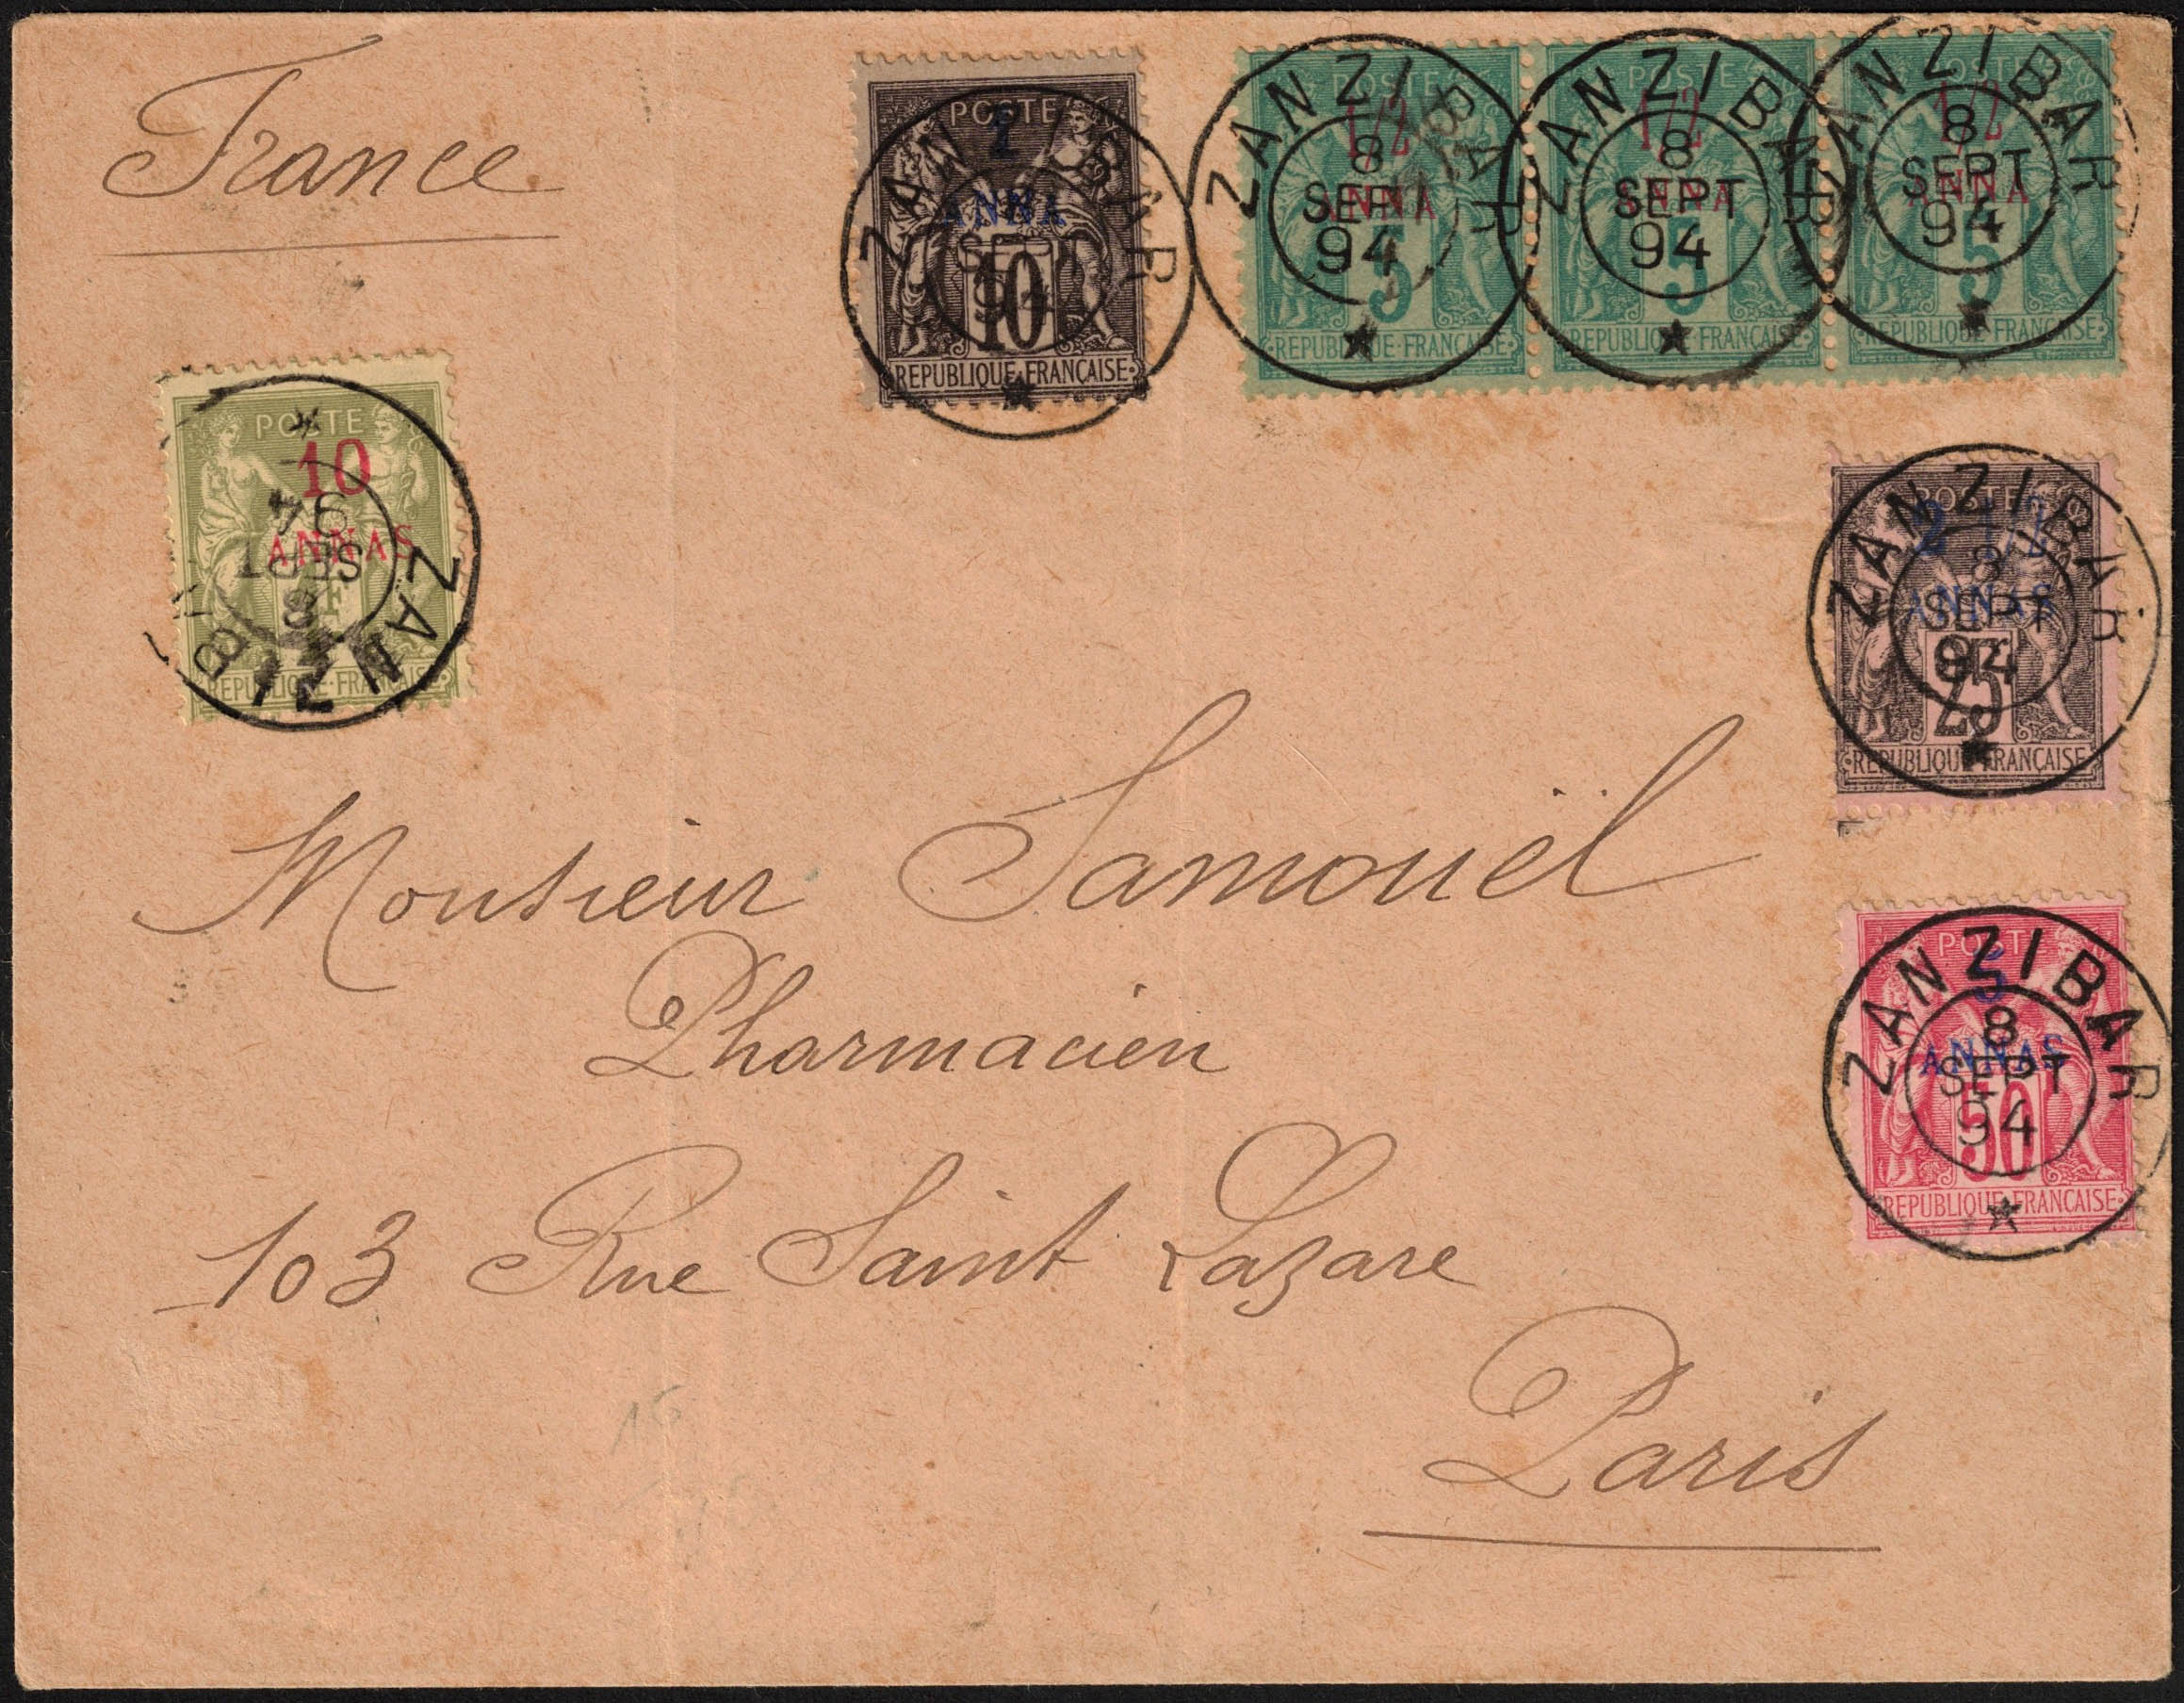 France
POSTE
1
ANNA
10
REPUBLIQUE FRANÇAISE
ZANZIBAR
SEPT
94
POSTE
1/2
ANNA
5
REPUBLIQUE FRANÇAISE
ZANZIBAR
8
SEPT
94
POSTE
1/2
ANNA
5
REPUBLIQUE FRANÇAISE
ZANZIBAR
8
SEPT
94
POSTE
1/2
ANNA
5
REPUBLIQUE FRANÇAISE
ZANZIBAR
8
SEPT
94
POSTE
10
ANNAS
1F
REPUBLIQUE FRANÇAISE
ZANZIBAR
8
SEPT
94
POSTE
2 1/2
ANNAS
25
REPUBLIQUE FRANÇAISE
ZANZIBAR
8
SEPT
94
POSTE
5
ANNAS
50
REPUBLIQUE FRANÇAISE
ZANZIBAR
8
SEPT
94
Monsieur Samouël
Pharmacien
103 Rue Saint Lazare
Paris